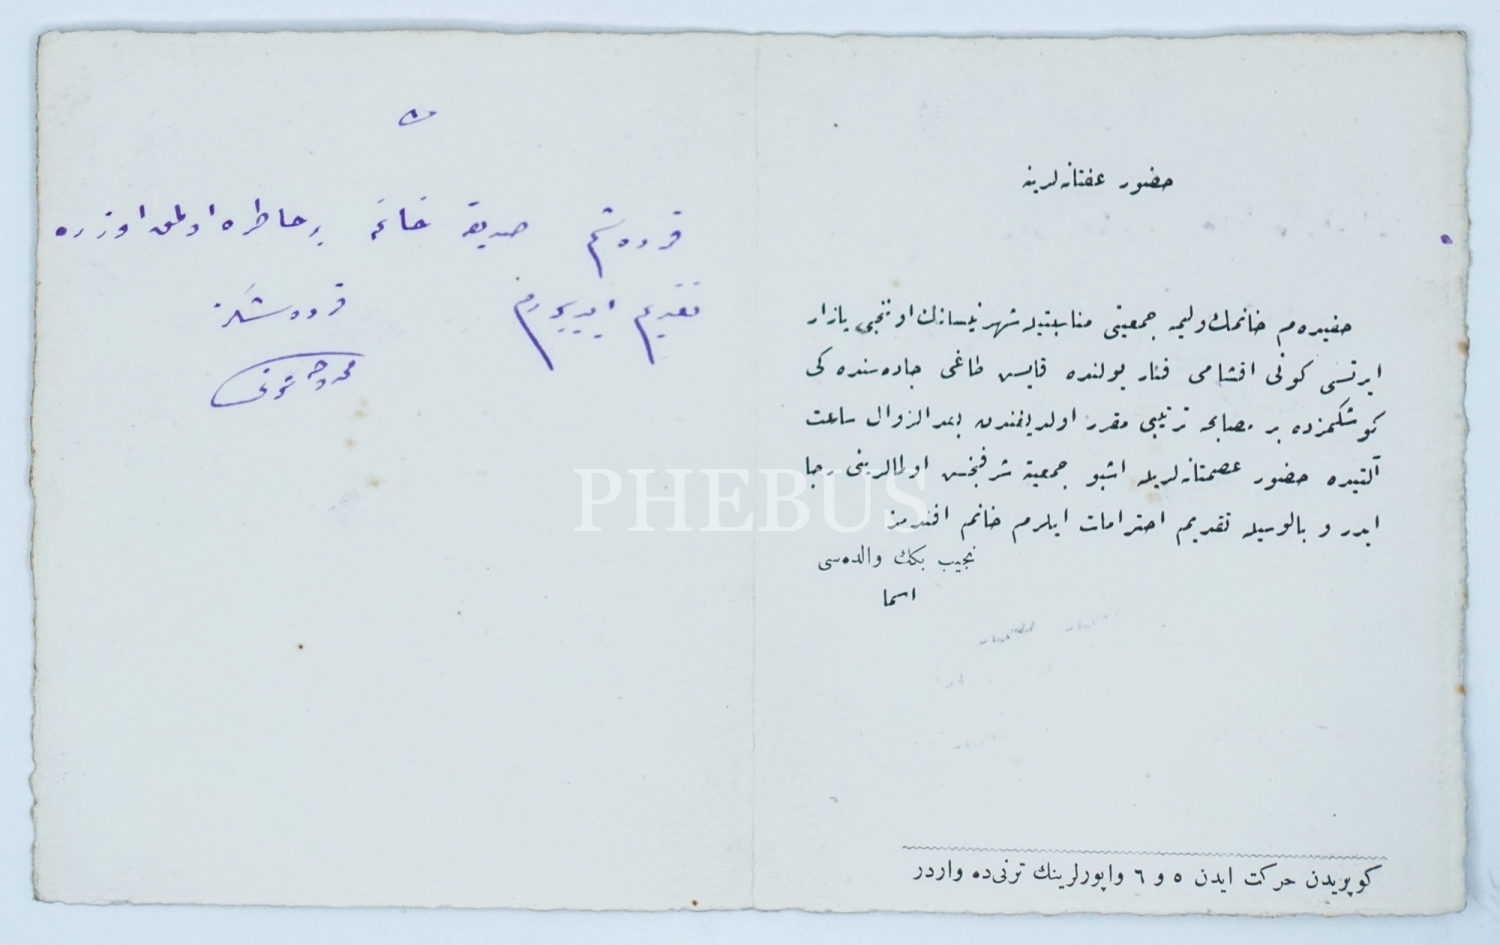 حضور عفتانه‌لرینه
حفیده‌م خانمك ولیمه جمعیتی مناسبتیله شهر نیسانك اوننجی پازار
ایرتسی كونی اقشامی فنار یولنده قایش طاغی جاده‌سنده كی
كوشكمزده بر مصاحبه ترتیبی مقرر اولدیغندن بعدالزوال ساعت
آلتیده حضور عصمتانه‌لریله اشبو جمعیته شرفبخش اولمالرینی رجا
ایدر و بالوسیله تقدیم احترامات ایلرم خانم افندیمز
نجیب بكك والده‌سی
اسما
كوپریدن حركت ایدن ٥ و ٦ واپورلرینك ترنی‌ده واردر
قرده‌شم صدیقه خانمه بر خاطره اولمق اوزره
تقدیم ایدییورم
قرده‌شكز
PHEBUS